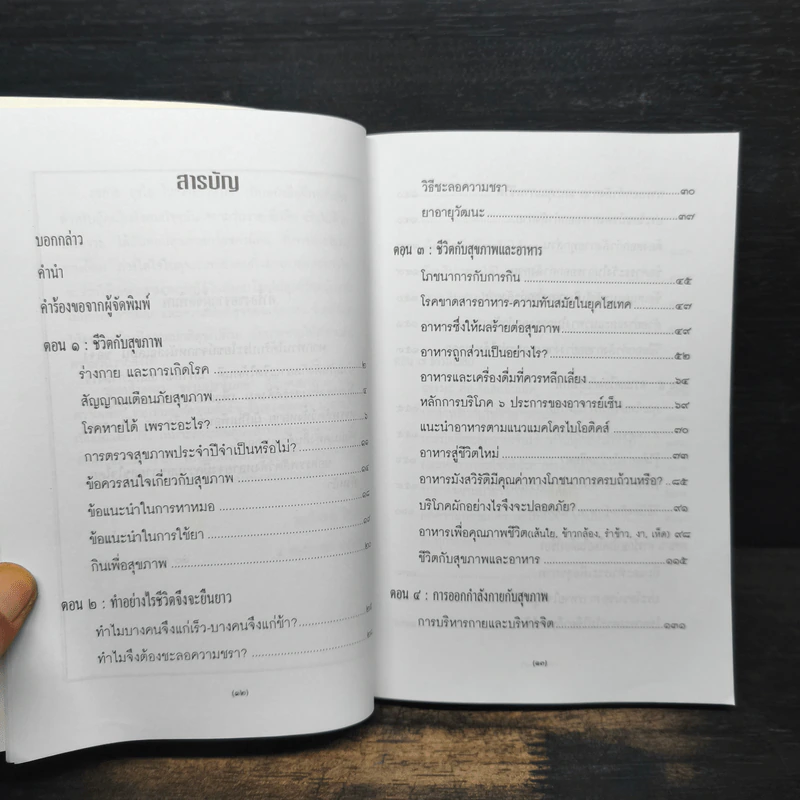 สารบัญ
บอกกล่าว
คำนำ
คำร้องขอจากผู้จัดพิมพ์
ตอน ๑ : ชีวิตกับสุขภาพ
ร่างกาย และการเกิดโรค ๒
สัญญาณเตือนภัยสุขภาพ
โรคหายได้ เพราะอะไร?
การตรวจสุขภาพประจำปีจำเป็นหรือไม่? ๑๑
ข้อควรสนใจเกี่ยวกับสุขภาพ ๑๔
ข้อแนะนำในการหาหมอ ๑๘
ข้อแนะนำในการใช้ยา
กินเพื่อสุขภาพ
ตอน ๒ : ทำอย่างไรชีวิตจึงจะยืนยาว
ทำไมบางคนจึงแก่เร็ว-บางคนจึงแก่ช้า?
ทำไมจึงต้องชะลอความชรา?
(๑๒)
วิธีชะลอความชรา ๓๐
ยาอายุวัฒนะ ๓๗
ตอน ๓ : ชีวิตกับสุขภาพและอาหาร
โภชนาการกับการกิน ๔๕
โรคขาดสารอาหาร-ความทันสมัยในยุคไฮเทค ๔๗
อาหารซึ่งให้ผลร้ายต่อสุขภาพ ๔๙
อาหารถูกส่วนเป็นอย่างไร? ๕๒
อาหารและเครื่องดื่มที่ควรหลีกเลี่ยง ๖๔
หลักการบริโภค ๖ ประการของอาจารย์เซ็น ๖๙
แนะนำอาหารตามแนวแมคโครไบโอติคส์ ๗๐
อาหารสู่ชีวิตใหม่ ๗๓
อาหารมังสวิรัติมีคุณค่าทางโภชนาการครบถ้วนหรือ? ๘๕
บริโภคผักอย่างไรจึงจะปลอดภัย? ๙๖
อาหารเพื่อคุณภาพชีวิต(เส้นใย, ข้าวกล้อง, รำข้าว, งา, เห็ด) ๙๘
ชีวิตกับสุขภาพและอาหาร ๑๑๕
ตอน ๔ : การออกกำลังกายกับสุขภาพ
การบริหารกายและบริหารจิต ๑๓๑
(๑๓)